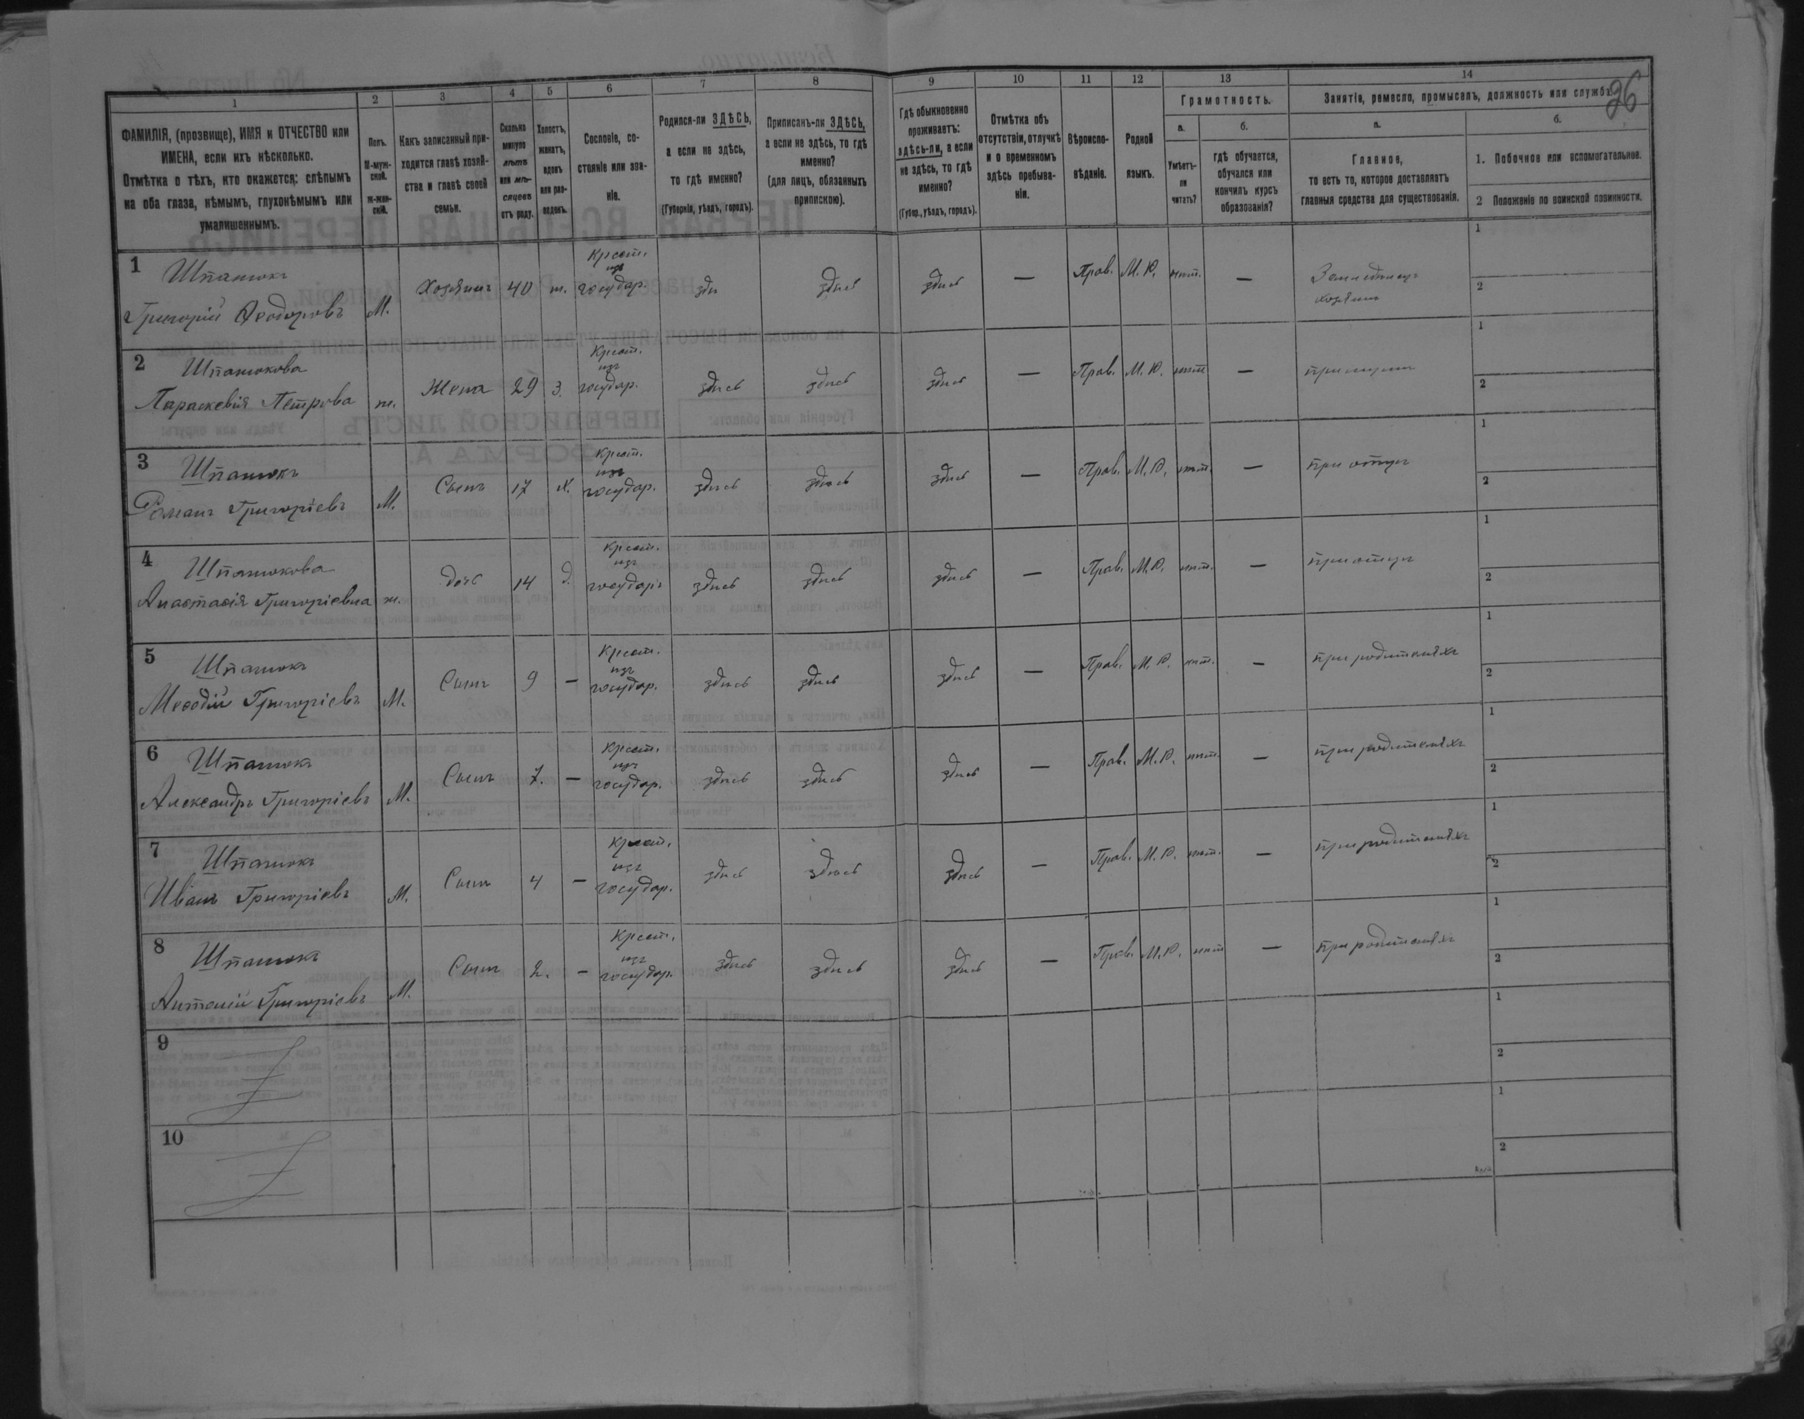 26
1 2 3 4 5 6 7 8 9 10 11 12 13 14
ФАМИЛІЯ, (прозвище), ИМЯ и ОТЧЕСТВО или
ИМЕНА, если ихъ нѣсколько.
Отмѣтка о тѣхъ, кто окажется: слѣпымъ
на оба глаза, нѣмымъ, глухонѣмымъ или
умалишеннымъ.
Полъ.
М-муж-
ской.
ж-жен-
скій.
Какъ записанный при-
ходится главѣ хозяй-
ства и главѣ своей
семьи.
Сколько
минуло
лѣтъ
или мѣ-
сяцевъ
отъ роду.
Холостъ,
женатъ,
вдовъ
или раз-
веденъ.
Сословіе, со-
стояніе или зва-
ніе.
Родился-ли ЗДѢСЬ,
а если не здѣсь,
то гдѣ именно?
(Губернія, уѣздъ, городъ).
Приписанъ-ли ЗДѢСЬ,
а если не здѣсь, то гдѣ
именно?
(для лицъ, обязанныхъ
припискою).
Гдѣ обыкновенно
проживаетъ:
здѣсь-ли, а если
не здѣсь, то гдѣ
именно?
(Губер., уѣздъ, городъ).
Отмѣтка объ
отсутствіи, отлучкѣ
и о временномъ
здѣсь пребыва-
ніи.
Вѣроиспо-
вѣданіе.
Родной
языкъ.
Грамотность.
а.
Умѣетъ-
ли
читать?
б.
гдѣ обучается,
обучался или
кончилъ курсъ
образованія?
Занятіе, ремесло, промыселъ, должность или служба.
а.
Главное,
то есть то, которое доставляетъ
главныя средства для существованія.
б.
1. Побочное или вспомогательное.
2 Положеніе по воинской повинности.
1 Шпатюкъ
Григорій Ѳеодоровъ М. Хозяинъ 40 ж. Крест. изъ государ. здѣ здѣсь здѣсь — Прав. М. Р. нѣт. — Земледѣлецъ хозяин 1 2
2 Шпатюкова
Параскевія Петрова ж. Жена 29 З. Крест. изъ государ. здѣсь здѣсь здѣсь — Прав. М. Р. нѣт — при мужѣ 1 2
3 Шпатюкъ
Романъ Григоріевъ М. Сынъ 17 Х. Крест. изъ государ. здѣсь здѣсь здѣсь — Прав. М. Р. нѣт. — при отцѣ 1 2
4 Шпатюкова
Анастасія Григоріевна ж. Дочь 14 Д. Крест. изъ государ. здѣсь здѣсь здѣсь — Прав. М. Р. нѣт. — при отцѣ 1 2
5 Шпатюкъ
Меѳодій Григоріевъ М. Сынъ 9 — Крест. изъ государ. здѣсь здѣсь здѣсь — Прав. М. Р. нѣт. — при родителяхъ 1 2
6 Шпатюкъ
Александръ Григоріевъ М. Сынъ 7. — Крест. изъ государ. здѣсь здѣсь здѣсь — Прав. М. Р. нѣт. — при родителяхъ 1 2
7 Шпатюкъ
Иванъ Григоріевъ М. Сынъ 4 — Крест. изъ государ. здѣсь здѣсь здѣсь — Прав. М. Р. нѣт. — при родителяхъ 1 2
8 Шпатюкъ
Антоній Григоріевъ М. Сынъ 2. — Крест. изъ государ. здѣсь здѣсь здѣсь — Прав. М. Р. нѣт — при родителяхъ 1 2
9 1 2
10 1 2